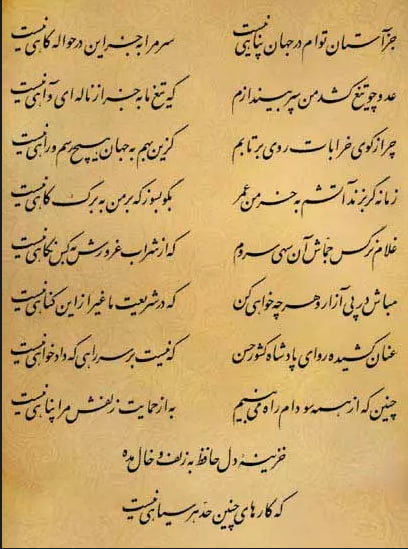 جز آستان توام در جهان پناهی نیست سر مرا به جز این در حواله گاهی نیست
عدو چو تیغ کشد من سپر بیندازم که تیغ ما به جز از ناله ای و آهی نیست
چرا ز کوی خرابات روی برتابم کزین بهم به جهان هیچ رسم و راهی نیست
زمانه گر بزند آتشم به خرمن عمر بگو بسوز که بر من به برگ کاهی نیست
غلام نرگس جماش آن سهی سروم که از شراب غرورش به کس نگاهی نیست
مباش در پی آزار و هر چه خواهی کن که در شریعت ما غیر از این گناهی نیست
عنان کشیده رو ای پادشاه کشور حسن که نیست بر سر راهی که دادخواهی نیست
چنین که از همه سو دام راه می بینم به از حمایت زلفش مرا پناهی نیست
خزینهٔ دل حافظ به زلف و خال مده
که کارهای چنین حدّ هر سیاهی نیست